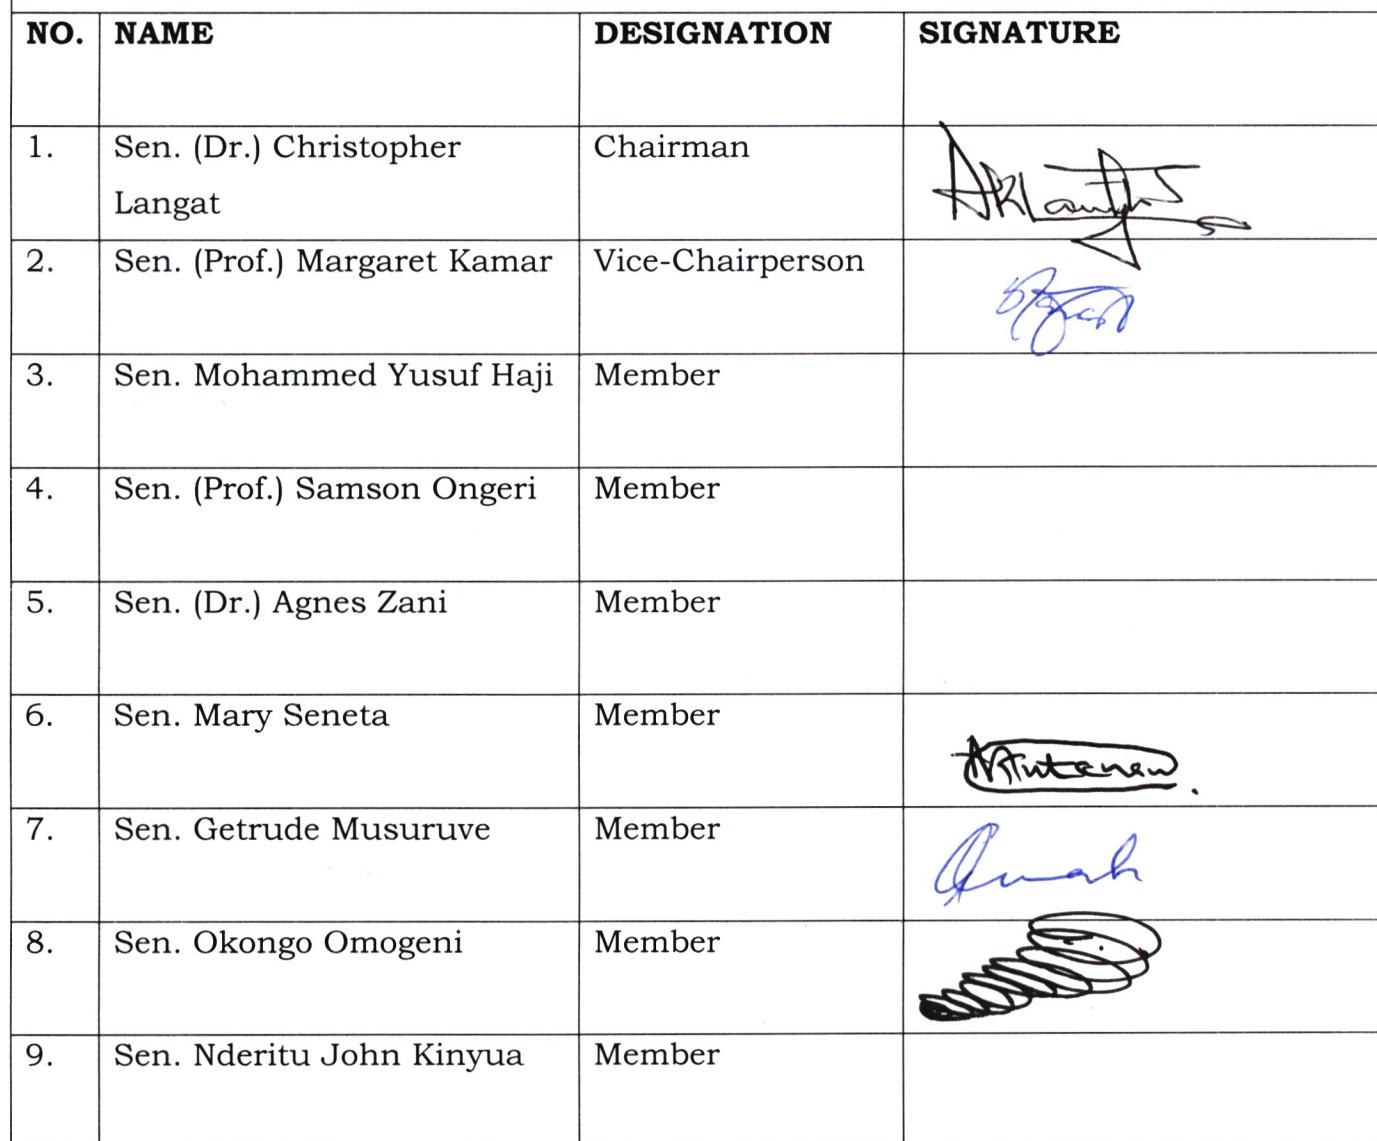 NO. NAME DESIGNATION SIGNATURE
1. Sen. (Dr.) Christopher Chairman
Langat
2. Sen. (Prof.) Margaret Kamar Vice-Chairperson
3. Sen. Mohammed Yusuf Haji Member
4. Sen. (Prof.) Samson Ongeri Member
5. Sen. (Dr.) Agnes Zani Member
6. Sen. Mary Seneta Member
7. Sen. Getrude Musuruve Member
8. Sen. Okongo Omogeni Member
9. Sen. Nderitu John Kinyua Member